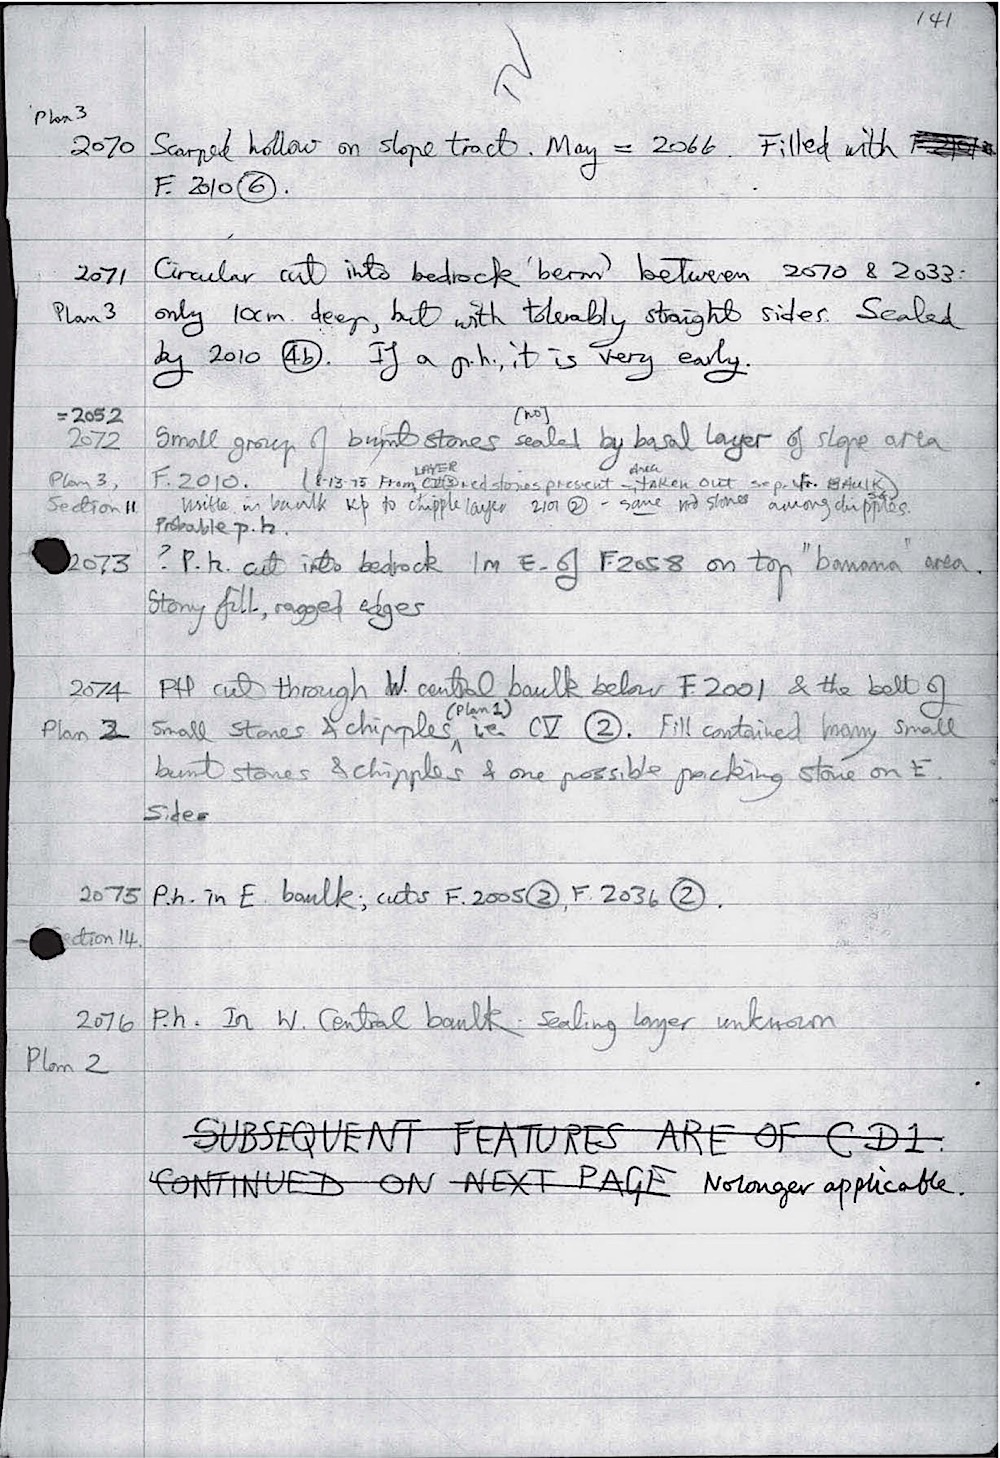 141
Plan 3
2070 Scarped hollow on slope tract. May = 2066. Filled with
F. 2010 ⑥.
2071 Circular cut into bedrock 'berm' between 2070 & 2033:
Plan 3 only 10cm. deep, but with tolerably straight sides. Sealed
by 2010 (4b). If a p.h., it is very early.
= 2052 [no]
2072 Small group of burnt stones sealed by basal layer of slope area
LAYER Area
Plan 3, F. 2010. (8-13-75 From red stones present - taken out sep. fr. BAULK)
Section 11 Visible in baulk up to chipple layer 2101 ② - some red stones among chipples.
Probable p.h.
2073 ? P.h. cut into bedrock 1m E. of F2058 on top "banana" area.
Stony fill, ragged edges
2074 PH cut through W. central baulk below F.2001 & the belt of
(Plan 1)
Plan 2 small stones & chipples ^ i.e. CV ②. Fill contained many small
burnt stones & chipples & one possible packing stone on E.
Side.
2075 P.h. in E. baulk; cuts F. 2005 ②, F. 2036 ②.
Section 14.
2076 P.h. In W. Central baulk. sealing layer unknown
Plan 2
SUBSEQUENT FEATURES ARE OF CD1.
CONTINUED ON NEXT PAGE No longer applicable.